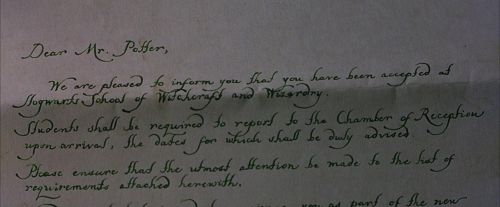 Dear Mr. Potter,
We are pleased to inform you that you have been accepted at
Hogwarts School of Witchcraft and Wizardry.
Students shall be required to report to the Chamber of Reception
upon arrival, the dates for which shall be duly advised.
Please ensure that the utmost attention be made to the list of
requirements attached herewith.
you as part of the new